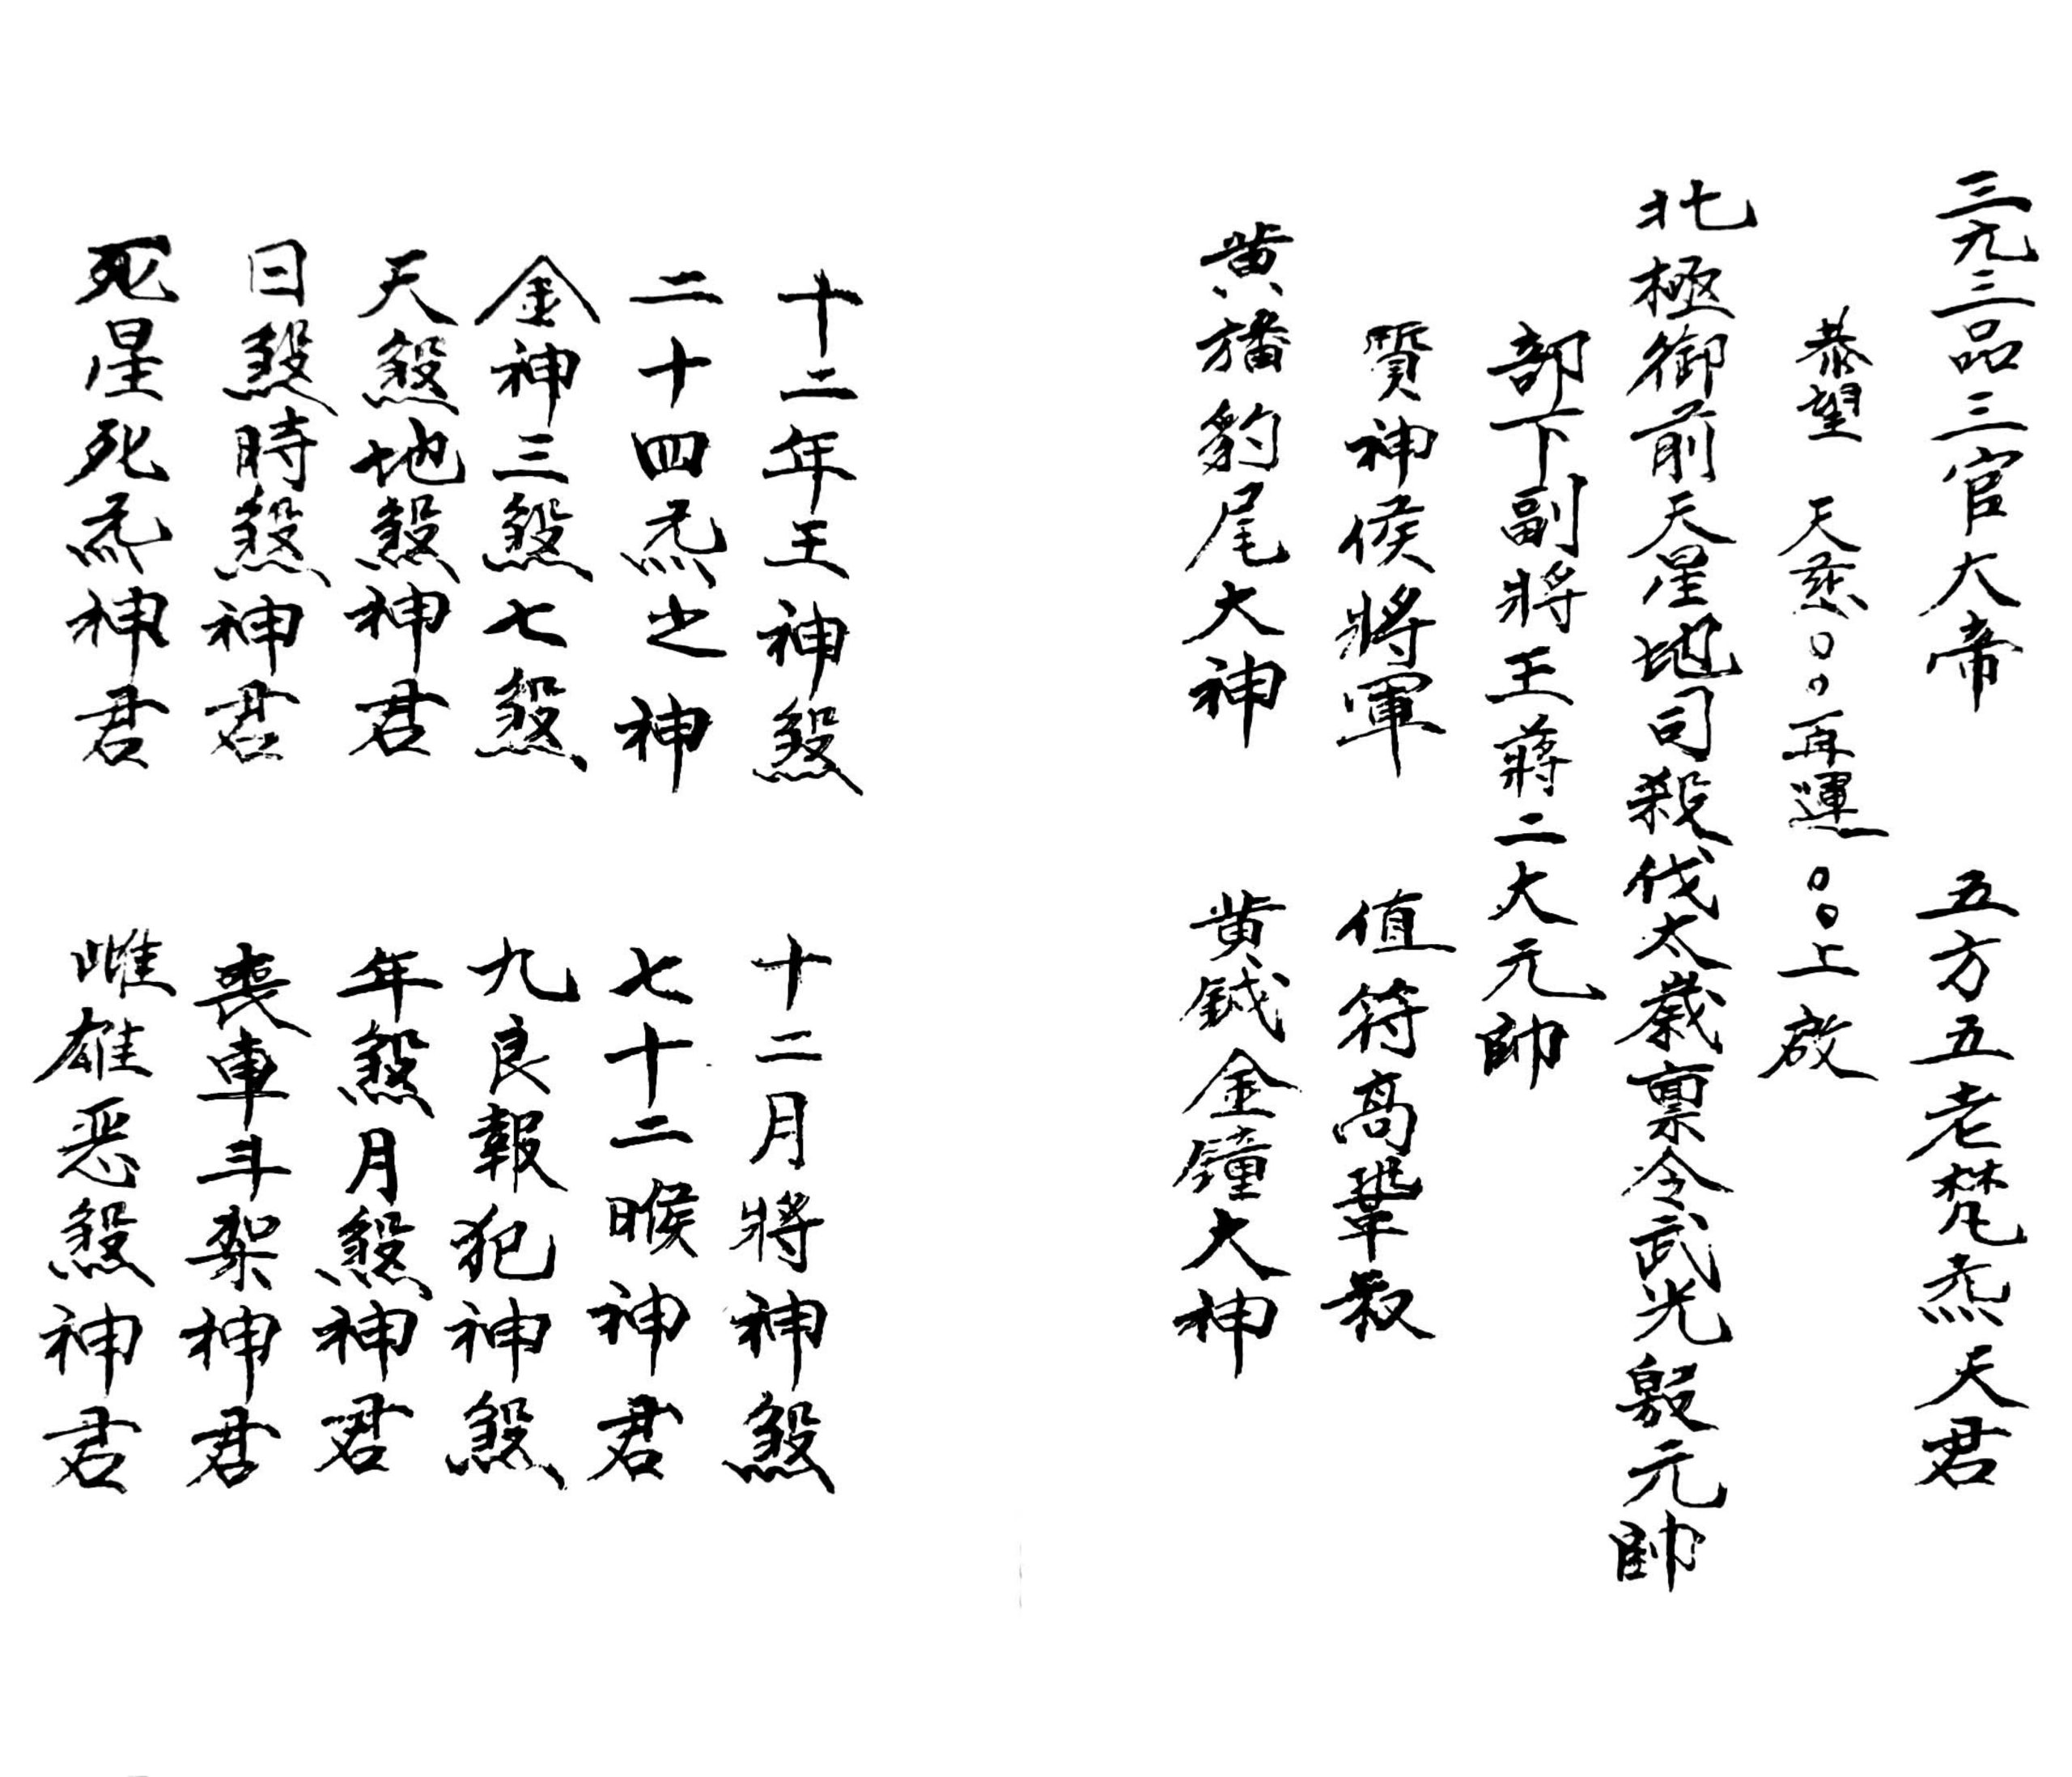 三元三品三官大帝　五方五老梵炁天君
恭望　天慈〇〇再運〇〇上啟
北極御前天星地司殺伐太歲稟令武光殷元帥
部下副將王蔣二大元帥
質神侯將軍　值符高鞏叔
黄旛豹尾大神　黄鉞金鐘大神
十二年王神煞　十二月將神煞
二十四炁之神　七十二睺神君
金神三煞七煞　九良報犯神煞
天煞地煞神君　年煞月煞神君
日煞時煞神君　喪車斗架神君
死星死炁神君　雌雄恶煞神君